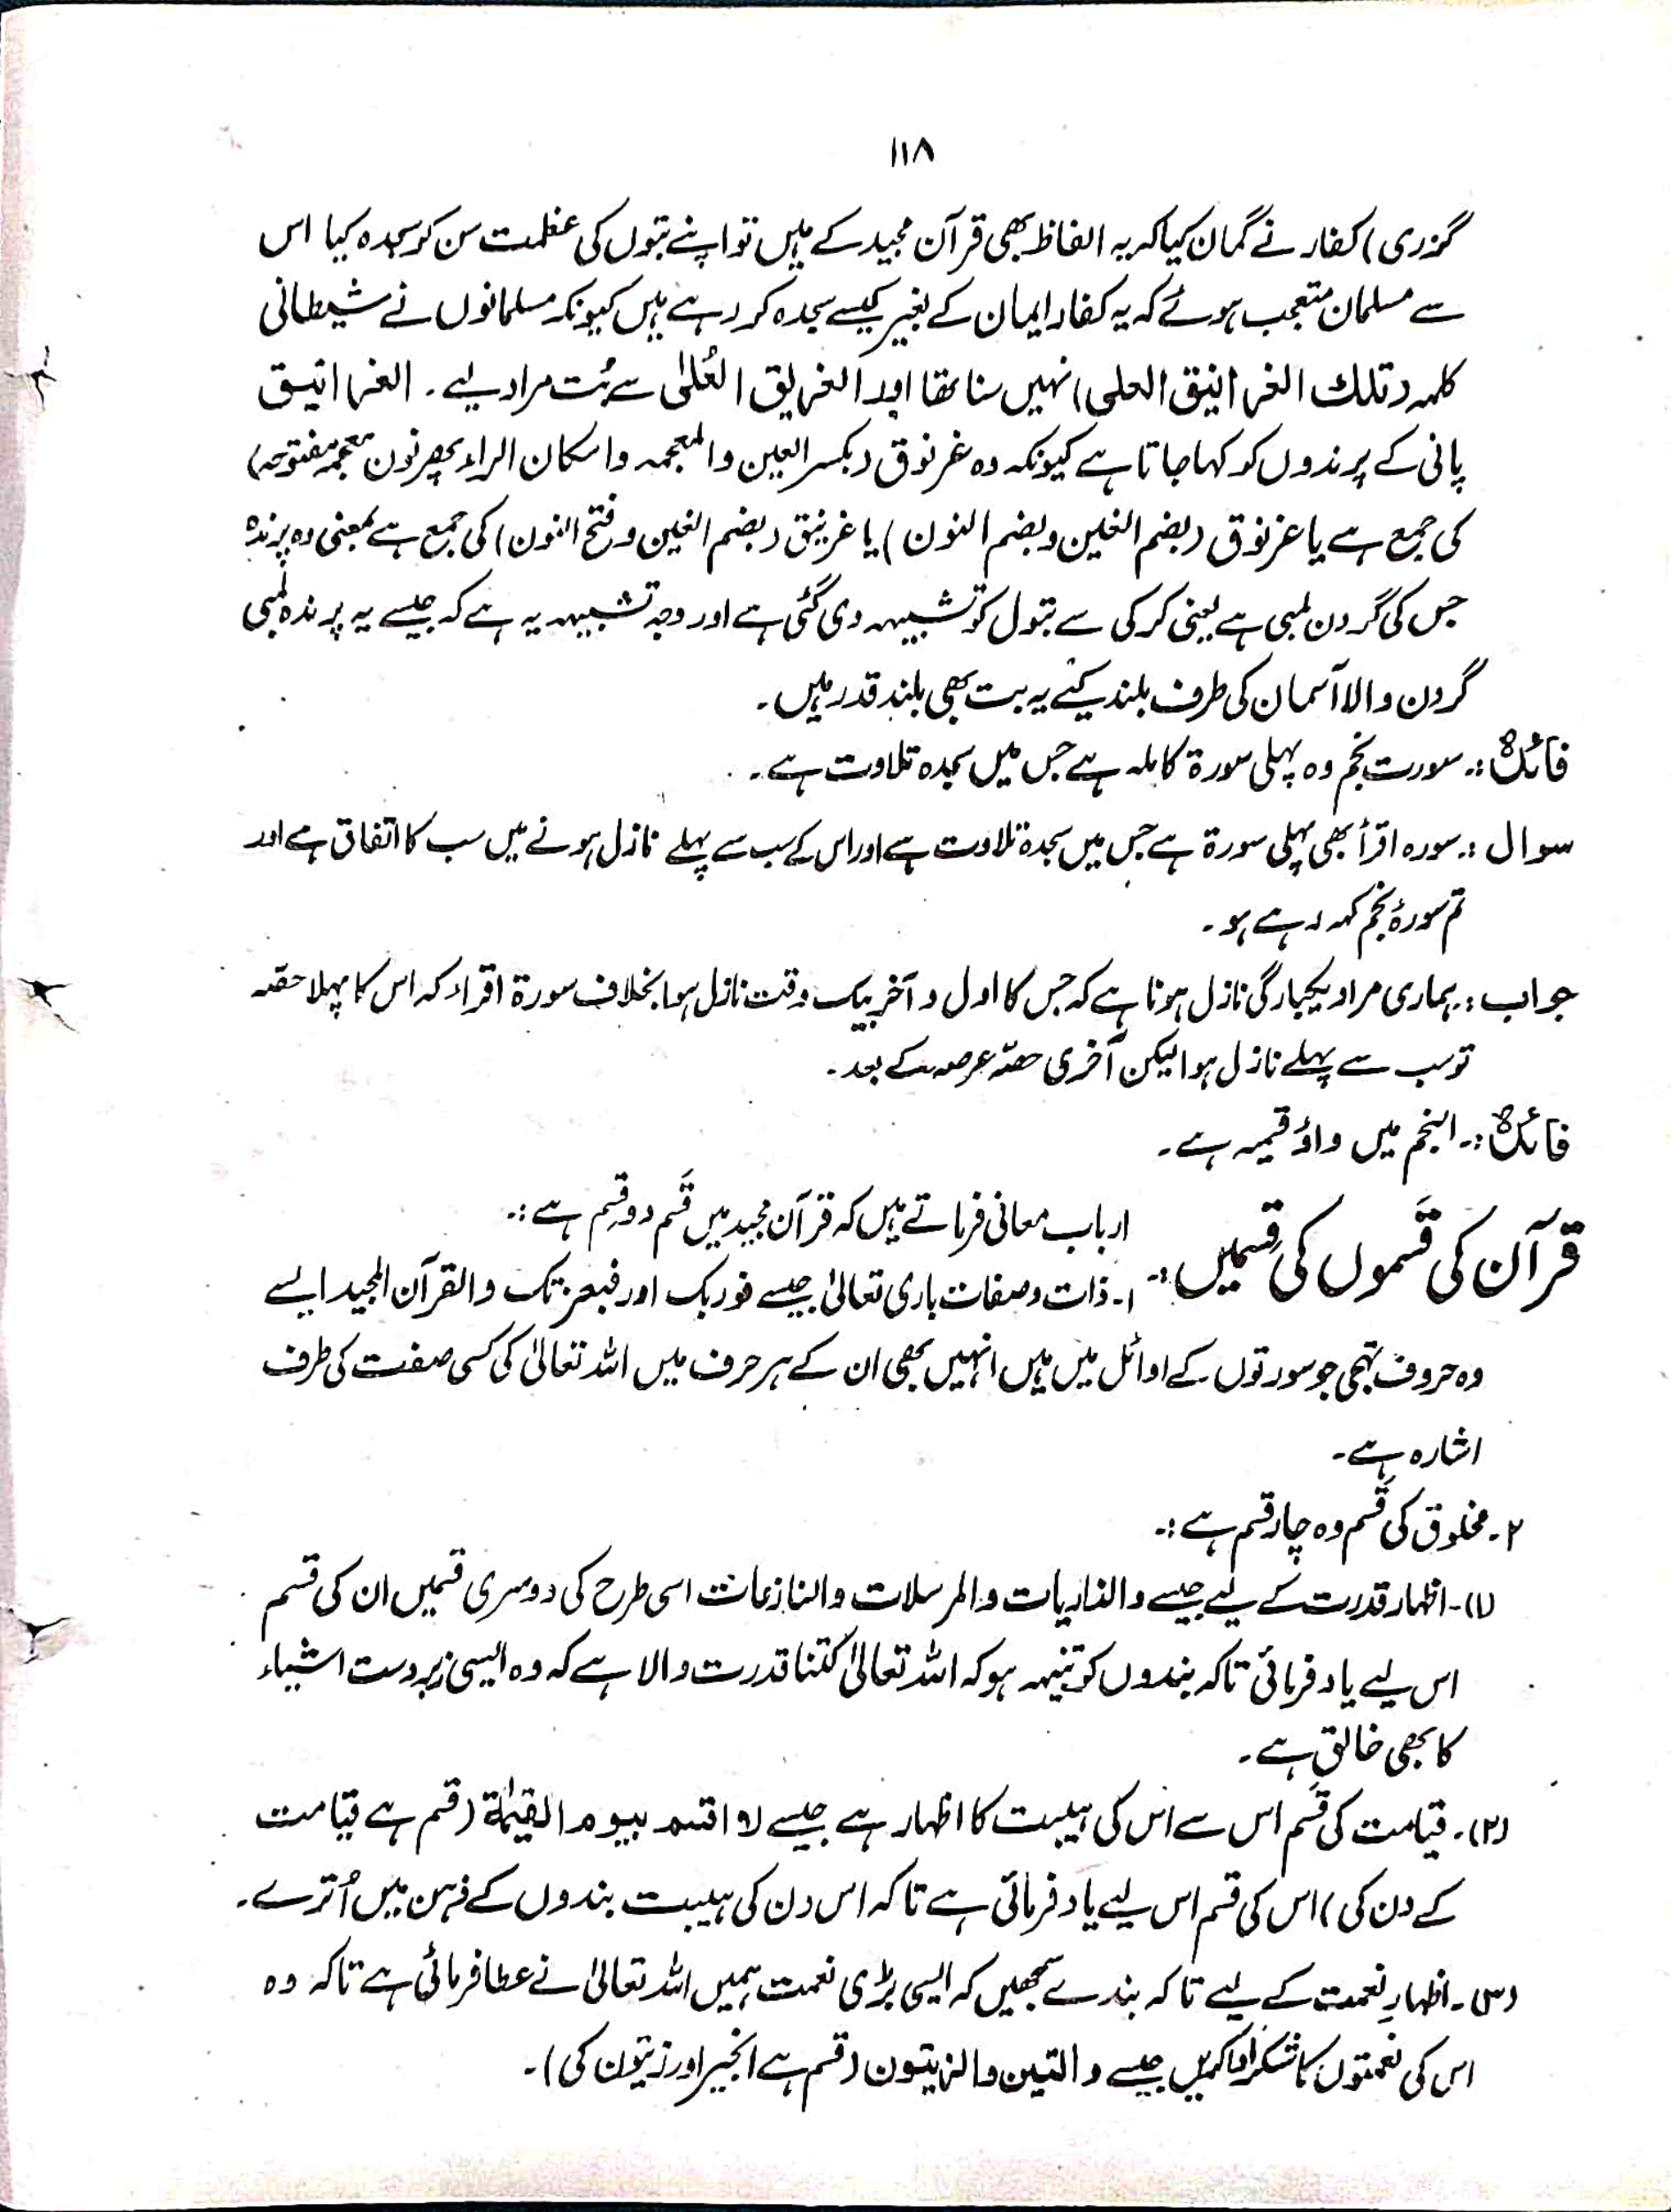 ۱۱۸
گزری) کفار نے گمان کیا کہ یہ الفاظ بھی قرآن مجید کے ہیں تو اپنے بتوں کی عظمت سن کر سجدہ کیا اس
سے مسلمان متعجب ہوئے کہ یہ کفار ایمان کے بغیر کیسے سجدہ کر رہے ہیں کیونکہ مسلمانوں نے شیطانی
کلمہ (تلك الغرانیق العلی) نہیں سنا تھا اور الغریق العُلیٰ سے بُت مراد لیے۔ الغرانیق
پانی کے پرندوں کو کہا جاتا ہے کیونکہ وہ غرنوق (بکسر العین والمعجمہ واسکان الراء پھر نون معجمہ مفتوحہ)
کی جمع ہے یا غرنوق (بضم الغین وبضم النون) یا غرنیق (بضم الغین وفتح النون) کی جمع ہے بمعنی وہ پرندہ
جس کی گردن لمبی ہے یعنی کرکی سے بتوں کو تشبیہہ دی گئی ہے اور وجہ تشبیہہ یہ ہے کہ جیسے یہ پرندہ لمبی
گردن والا آسمان کی طرف بلند کیئے یہ بت بھی بلند قدر ہیں۔
فائدہ:۔ سورت نجم وہ پہلی سورۃ کاملہ ہے جس میں سجدہ تلاوت ہے۔
سوال:۔ سورہ اقرأ بھی پہلی سورۃ ہے جس میں سجدۂ تلاوت ہے اور اس کے سب سے پہلے نازل ہونے میں سب کا اتفاق ہے اور
تم سورۂ نجم کہہ رہے ہو۔
جواب:۔ ہماری مراد یکبارگی نازل ہونا ہے کہ جس کا اول و آخر بیک وقت نازل ہوا بخلاف سورۃ اقراء کہ اس کا پہلا حصّہ
تو سب سے پہلے نازل ہوا لیکن آخری حصّہ عرصہ کے بعد۔
فائدہ:۔ النجم میں واؤ قسمیہ ہے۔
قرآن کی قَسموں کی قِسمیں:۔ ارباب معانی فرماتے ہیں کہ قرآن مجید میں قَسم دو قِسم ہے:۔
۱۔ ذات و صفات باری تعالیٰ جیسے فوربک اور فبعزتک والقرآن المجید ایسے
وہ حروف تہجی جو سورتوں کے اوائل میں ہیں انہیں بھی ان کے ہر حرف میں اللہ تعالیٰ کی کسی صفت کی طرف
اشارہ ہے۔
۲۔ مخلوق کی قَسم وہ چار قسم ہے:۔
(۱)۔ اظہار قدرت کے لیے جیسے والذاریات والمرسلات والنازعات اسی طرح کی دوسری قسمیں ان کی قسم
اس لیے یاد فرمائی تاکہ بندوں کو تنبیہہ ہو کہ اللہ تعالیٰ کتنا قدرت والا ہے کہ وہ ایسی زبردست اشیاء
کا بھی خالق ہے۔
(۲)۔ قیامت کی قَسم اس سے اس کی ہیبت کا اظہار ہے جیسے لا اقسم بیوم القیٰمۃ (قسم ہے قیامت
کے دن کی) اس کی قسم اس لیے یاد فرمائی ہے تاکہ اس دن کی ہیبت بندوں کے ذہن میں اُترے۔
(۳)۔ اظہارِ نعمت کے لیے تاکہ بندے سمجھیں کہ ایسی بڑی نعمت ہمیں اللہ تعالیٰ نے عطا فرمائی ہے تاکہ وہ
اس کی نعمتوں کا شکر ادا کریں جیسے والتین والزیتون (قسم ہے انجیر اور زیتون کی)۔